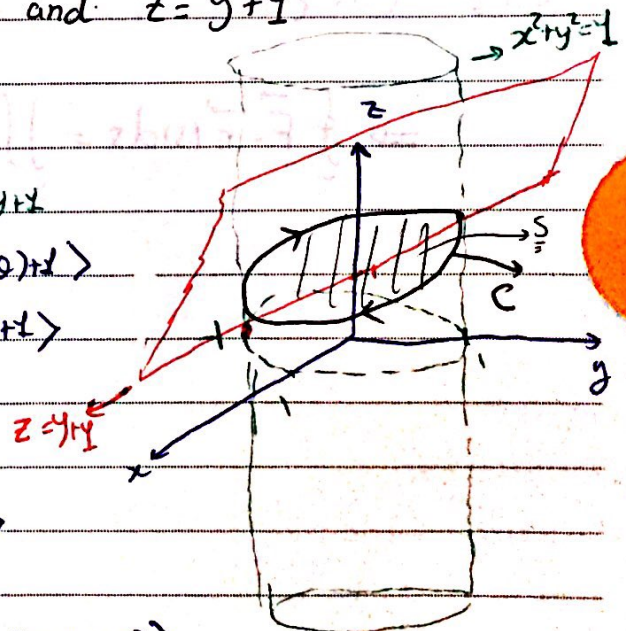 and z = y+1
x²+y²=1
z
y+1
)+1>
S
+1>
C
1
1
y
z = y+1
1
x